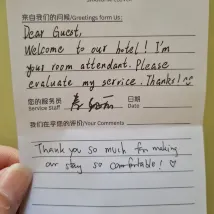 来自我们的问候/Greetings form Us:
Dear Guest,
Welcome to our hotel! I'm
your room attendant. Please
evaluate my service. Thanks!
您的服务员 日期
Service Staff Date
我们在乎您的评价/Your Comments
Thank you so much for making
our stay so comfortable! ♡